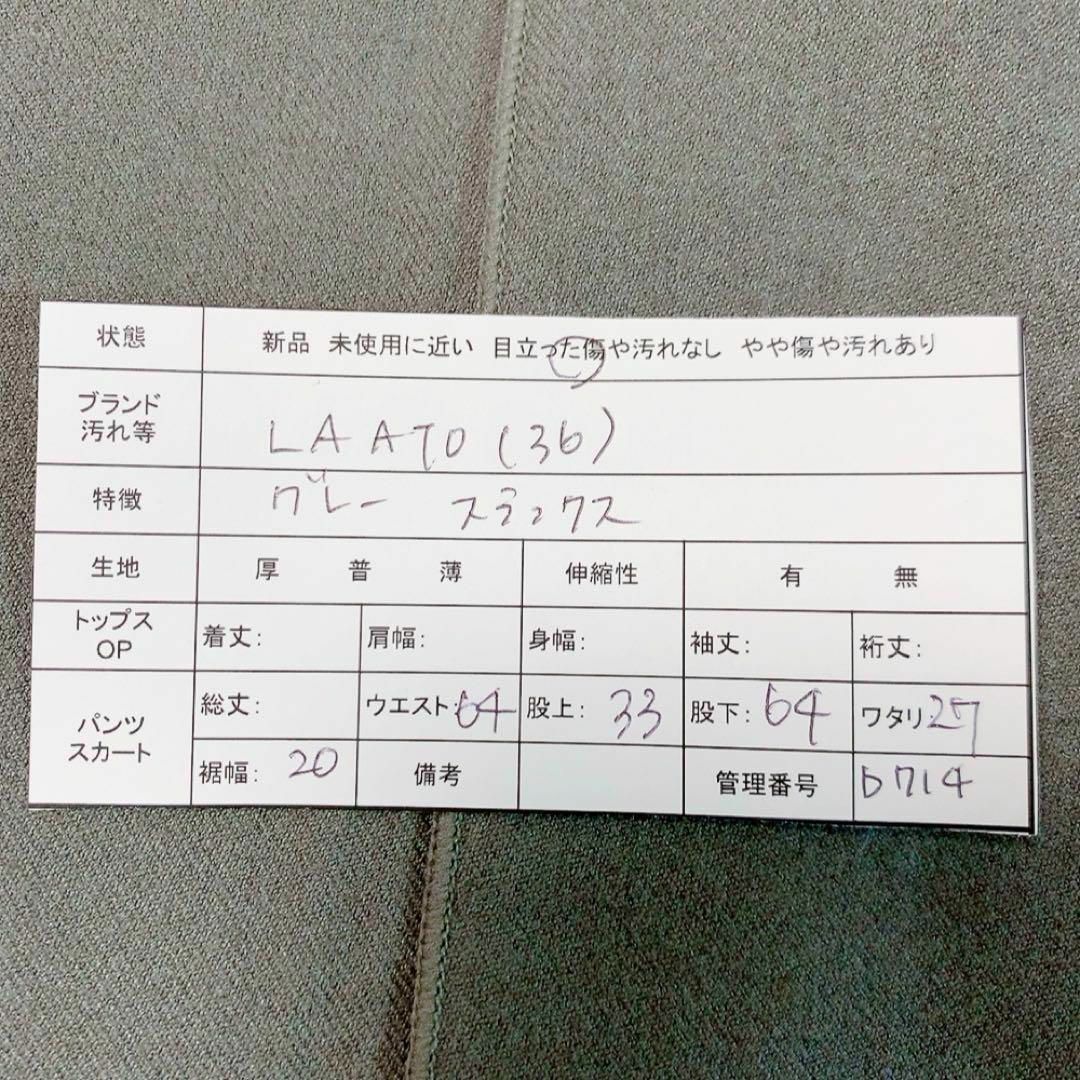 状態 新品 未使用に近い 目立った傷や汚れなし やや傷や汚れあり
ブランド
汚れ等
LAATO (36)
特徴 グレー スラックス
生地 厚 普 薄 伸縮性 有 無
トップス
OP
着丈: 肩幅: 身幅: 袖丈: 裄丈:
パンツ
スカート
総丈: ウエスト:64 股上: 33 股下: 64 ワタリ27
裾幅: 20 備考 管理番号 D714